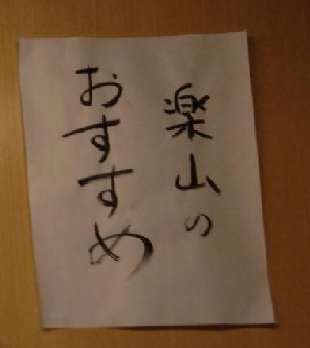 楽山の
おすすめ